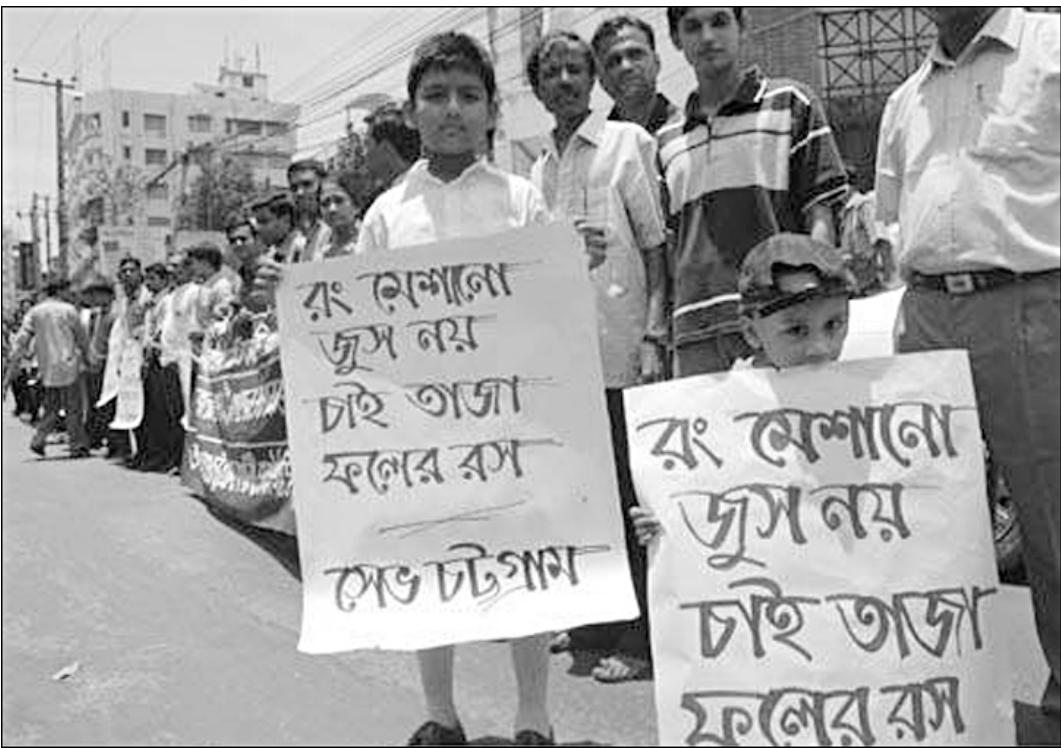 রং মেশানো
জুস নয়
চাই তাজা
ফলের রস
সেভ চট্টগ্রাম
রং মেশানো
জুস নয়
চাই তাজা
ফলের রস